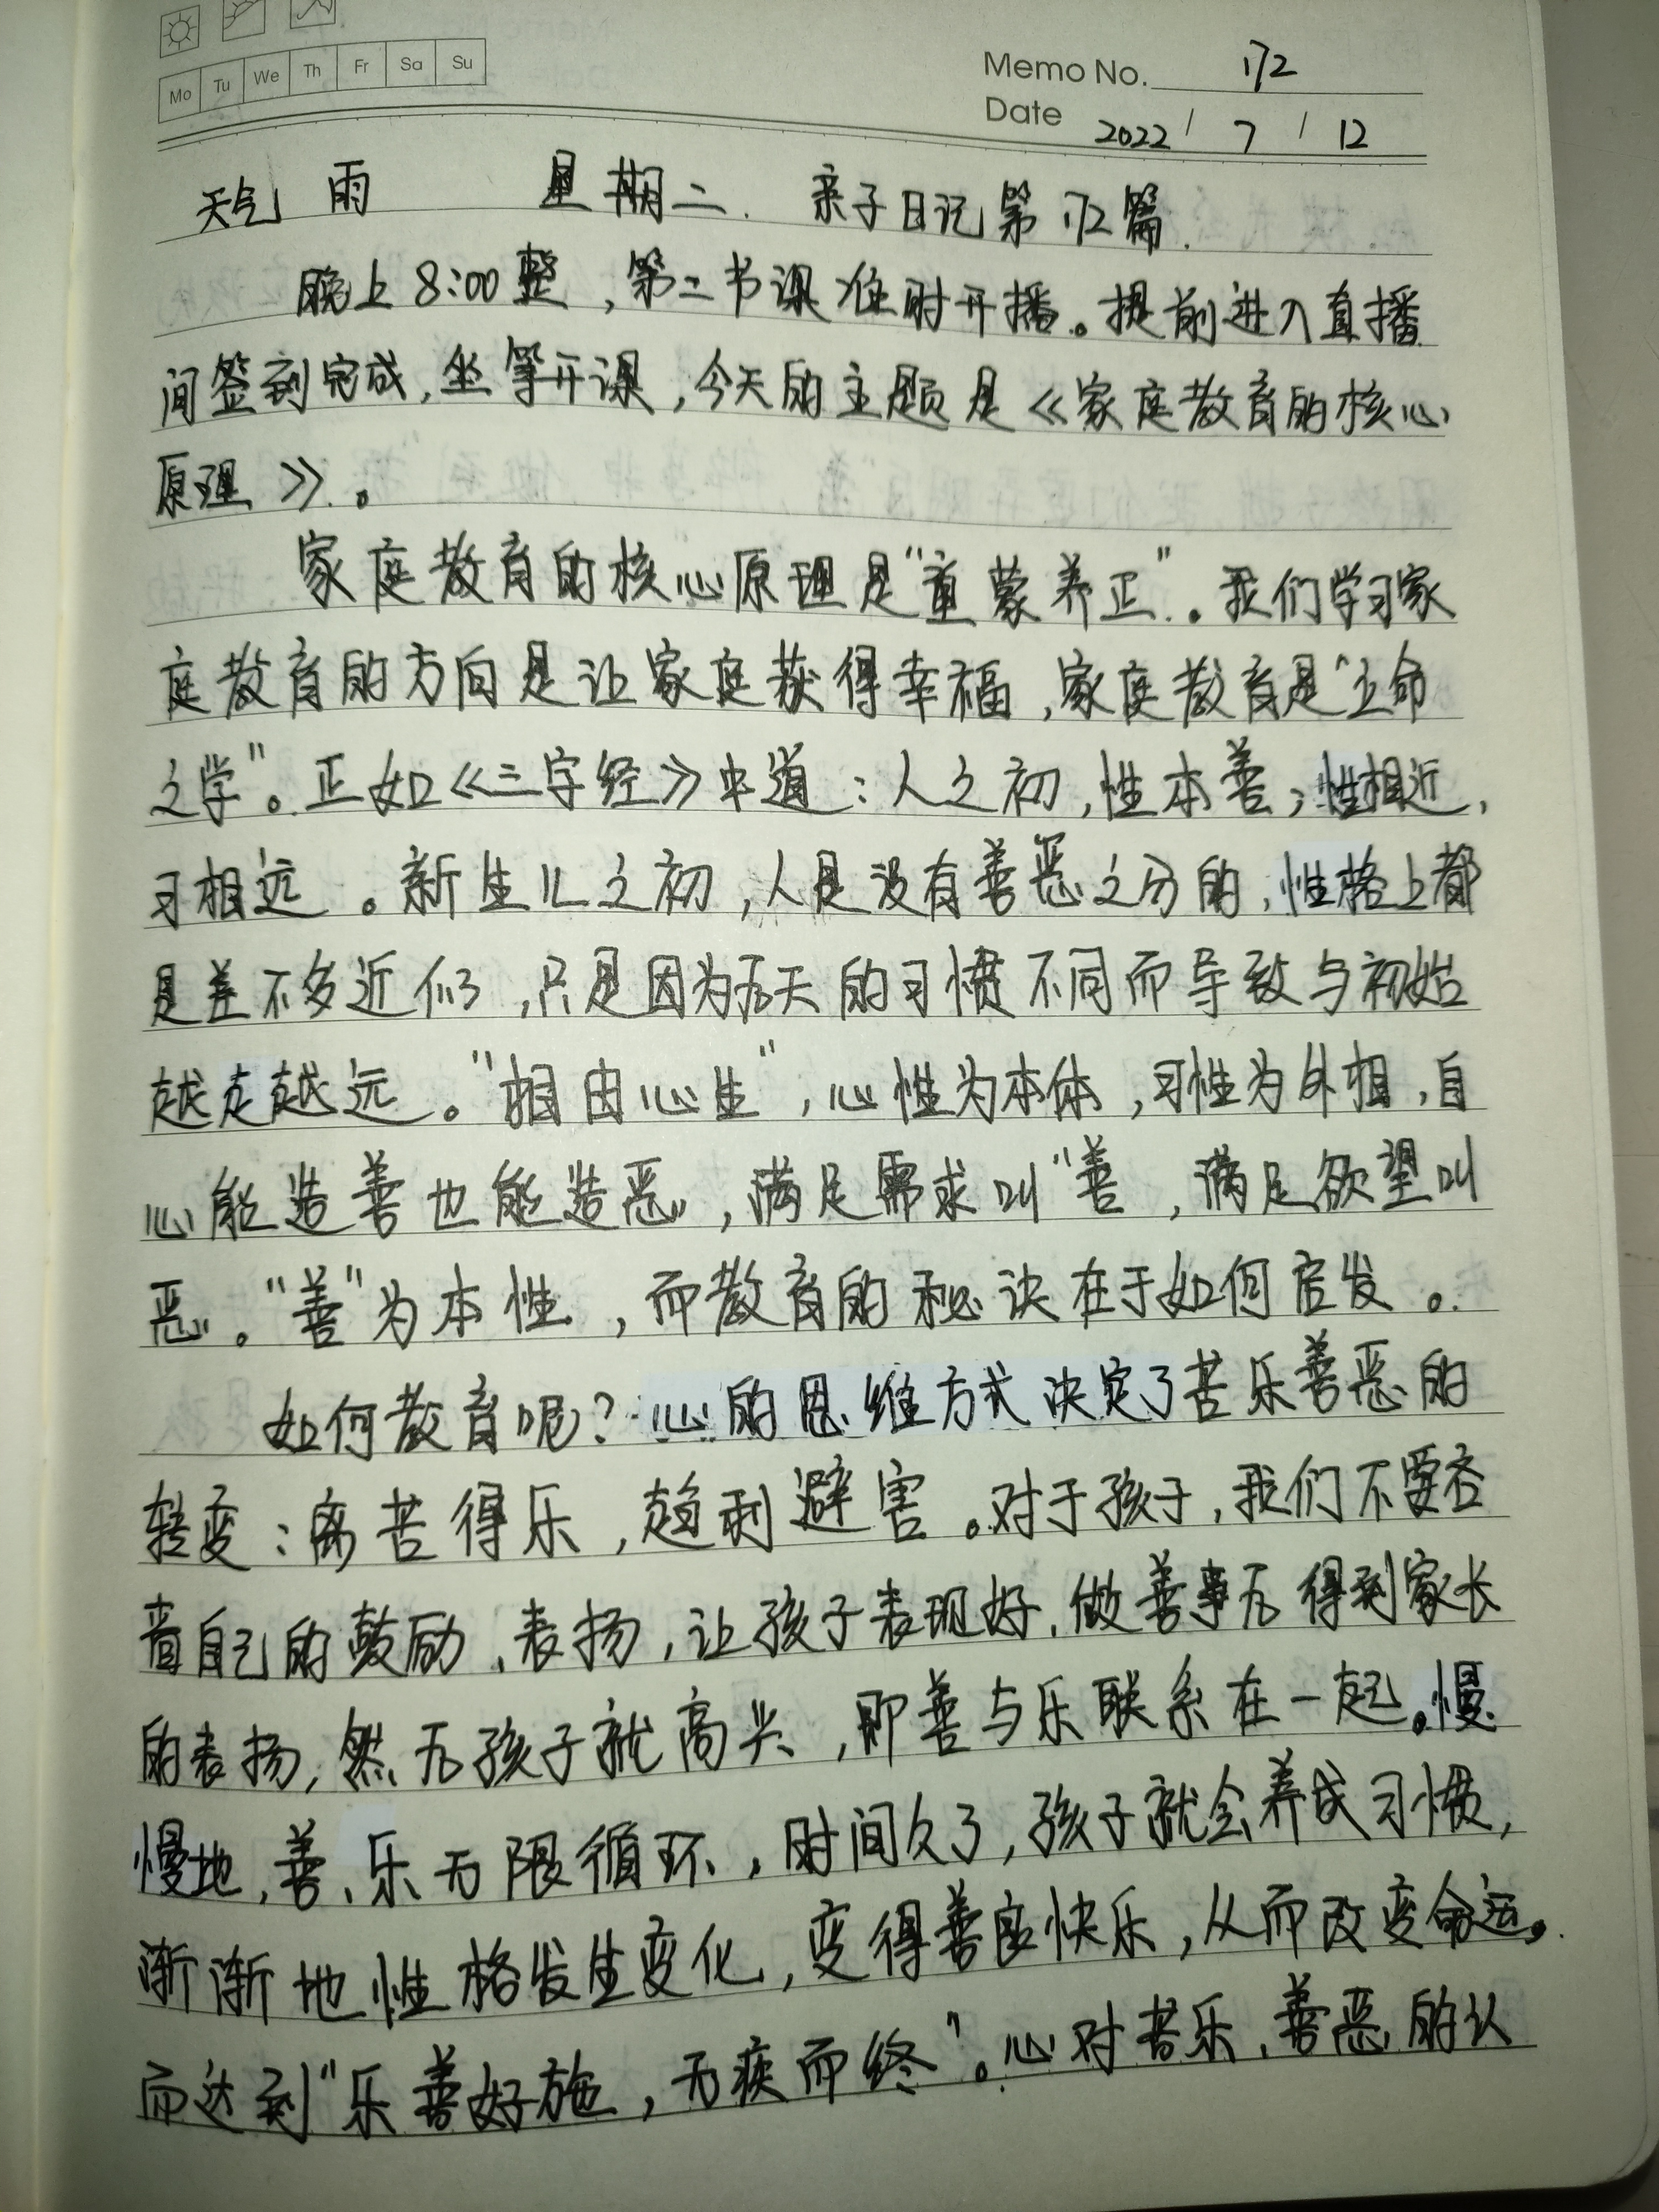 Mo Tu We Th Fr Sa Su
Memo No. 172
Date 2022 / 7 / 12
天气 雨 星期二. 亲子日记第172篇.
晚上8:00整,第二节课准时开播。提前进入直播
间签到完成,坐等开课,今天的主题是《家庭教育的核心
原理》。
家庭教育的核心原理是"童蒙养正"。我们学习家
庭教育的方向是让家庭获得幸福,家庭教育是"立命
之学"。正如《三字经》中道:人之初,性本善;性相近,
习相远。新生儿之初,人是没有善恶之分的,性格上都
是差不多近似,只是因为后天的习惯不同而导致与初始
越走越远。"相由心生",心性为本体,习性为外相,自
心能造善也能造恶,满足需求叫"善,满足欲望叫
恶。"善"为本性,而教育的秘诀在于如何启发。
如何教育呢?心的思维方式决定了苦乐善恶的
转变:离苦得乐,趋利避害。对于孩子,我们不要吝
啬自己的鼓励、表扬,让孩子表现好、做善事后得到家长
的表扬,然后孩子就高兴,即善与乐联系在一起。慢
慢地,善、乐无限循环,时间久了,孩子就会养成习惯,
渐渐地性格发生变化,变得善良快乐,从而改变命运。
而达到"乐善好施,无疾而终"。心对苦乐、善恶的认